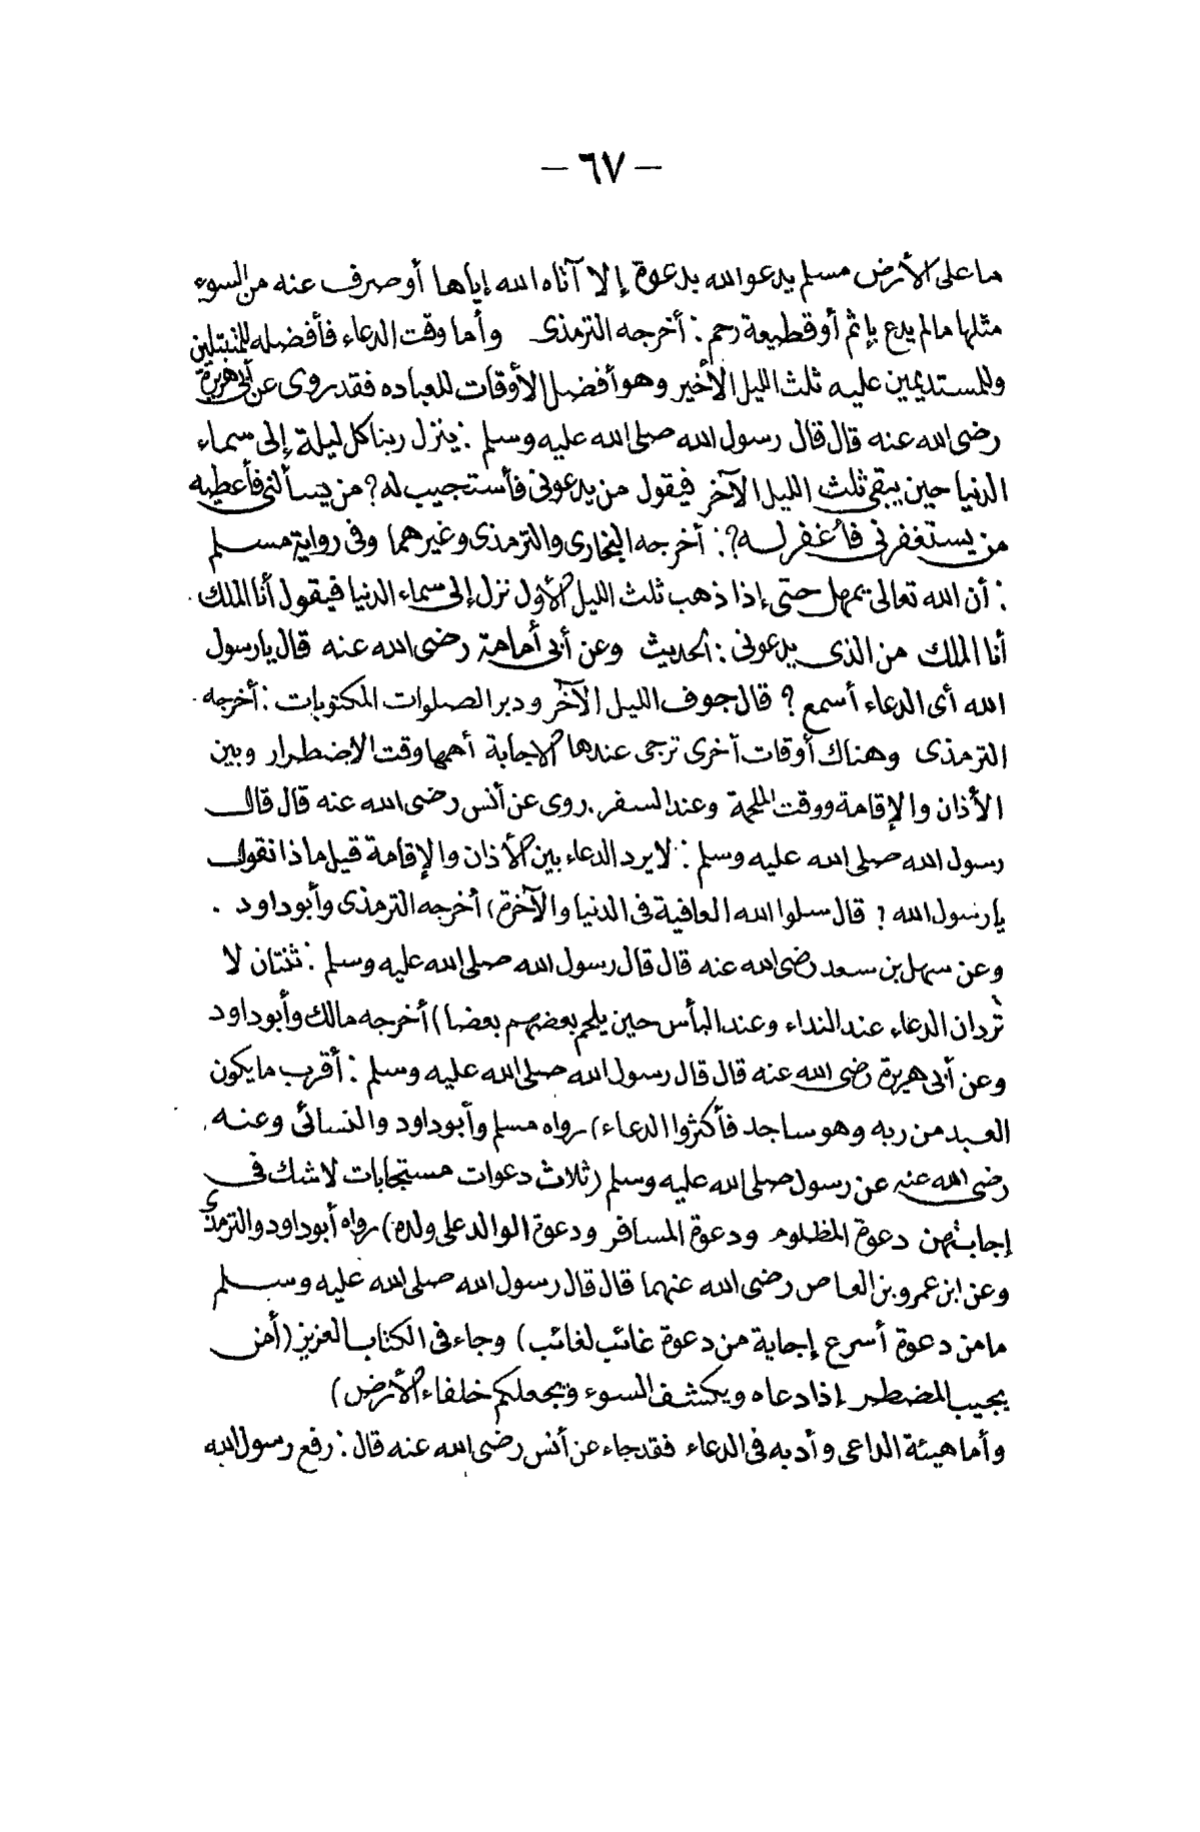 — ٦٧ —
ما على الأرض مسلم يدعو الله بدعوة إلا آتاه الله إياها أو صرف عنه من السوء
مثلها ما لم يدع بإثم أو قطيعة رحم : أخرجه الترمذى وأما وقت الدعاء فأفضله للمتبتلين
وللمستديمين عليه ثلث الليل الأخير وهو أفضل الأوقات للعباده فقد روى عن أبى هريرة
رضى الله عنه قال قال رسول الله صلى الله عليه وسلم : ينزل ربنا كل ليلة إلى سماء
الدنيا حين يبقى ثلث الليل الآخر فيقول من يدعونى فأستجيب له ? من يسألنى فأعطيه
من يستغفرنى فأغفر له ?: أخرجه البخارى والترمذى وغيرهما وفى رواية مسلم
: أن الله تعالى يمهل حتى إذا ذهب ثلث الليل الأول نزل إلى سماء الدنيا فيقول أنا الملك .
أنا الملك من الذى يدعونى : الحديث وعن أبى أمامة رضى الله عنه قال يا رسول
الله أى الدعاء أسمع ? قال جوف الليل الآخر ودبر الصلوات المكتوبات : أخرجه .
الترمذى وهناك أوقات أخرى ترجى عندها الاجابة أهمها وقت الاضطرار وبين
الأذان والإقامة ووقت الملحمة وعند السفر . روى عن أنس رضى الله عنه قال قال
رسول الله صلى الله عليه وسلم : لا يرد الدعاء بين الأذان والإقامة قيل ماذا نقول
يا رسول الله ? قال سلوا الله العافية فى الدنيا والآخرة ) أخرجه الترمذى وأبوداود .
وعن سهل بن سعد رضى الله عنه قال قال رسول الله صلى الله عليه وسلم : ثنتان لا
تردان الدعاء عند النداء وعند البأس حين يلحم بعضهم بعضا ) أخرجه مالك وأبوداود
وعن أبى هريرة رضى الله عنه قال قال رسول الله صلى الله عليه وسلم : أقرب ما يكون
العبد من ربه وهو ساجد فأكثروا الدعاء ) رواه مسلم وأبوداود والنسائى وعنه .
رضى الله عنه عن رسول صلى الله عليه وسلم ( ثلاث دعوات مستجابات لا شك فى
إجابتهن دعوة المظلوم ودعوة المسافر ودعوة الوالد على ولده ) رواه أبوداود والترمذى
وعن ابن عمرو بن العاص رضى الله عنهما قال قال رسول الله صلى الله عليه وسلم
ما من دعوة أسرع إجابة من دعوة غائب لغائب ) وجاء فى الكتاب العزيز ( أمن
يجيب المضطر إذا دعاه ويكشف السوء ويجعلكم خلفاء الأرض )
وأما هيئة الداعى وأدبه فى الدعاء فقد جاء عن أنس رضى الله عنه قال : رفع رسول الله